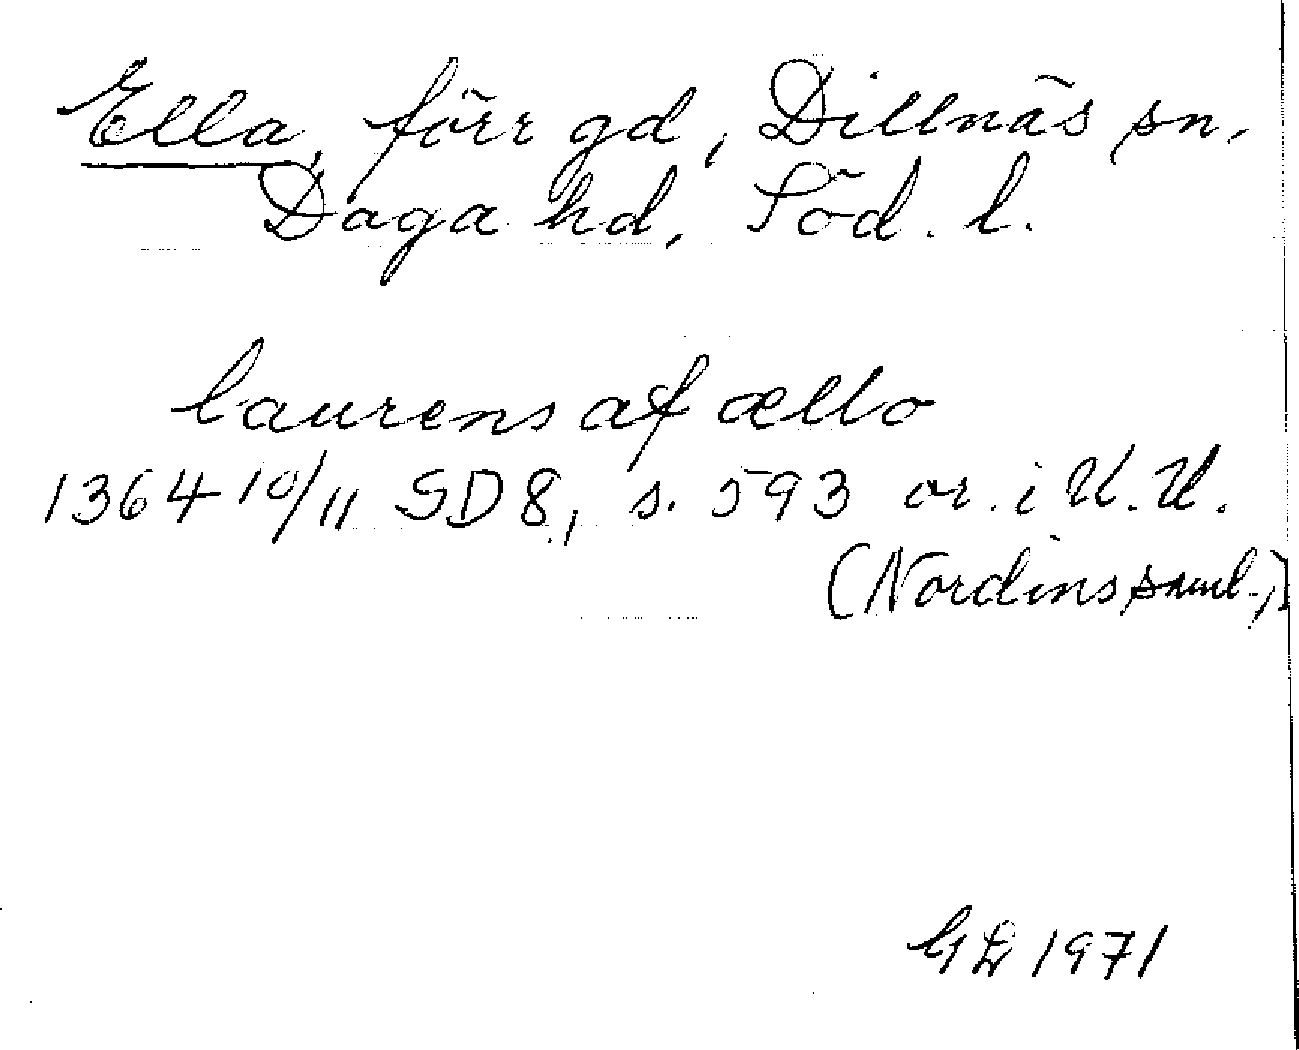 Ella, förr gd, Dillnäs sn,
Daga hd, Söd. l.
laurens af ællo
1364 10/11 SD 8, s. 593 or. i U.U.
(Nordins saml.)
GL 1971